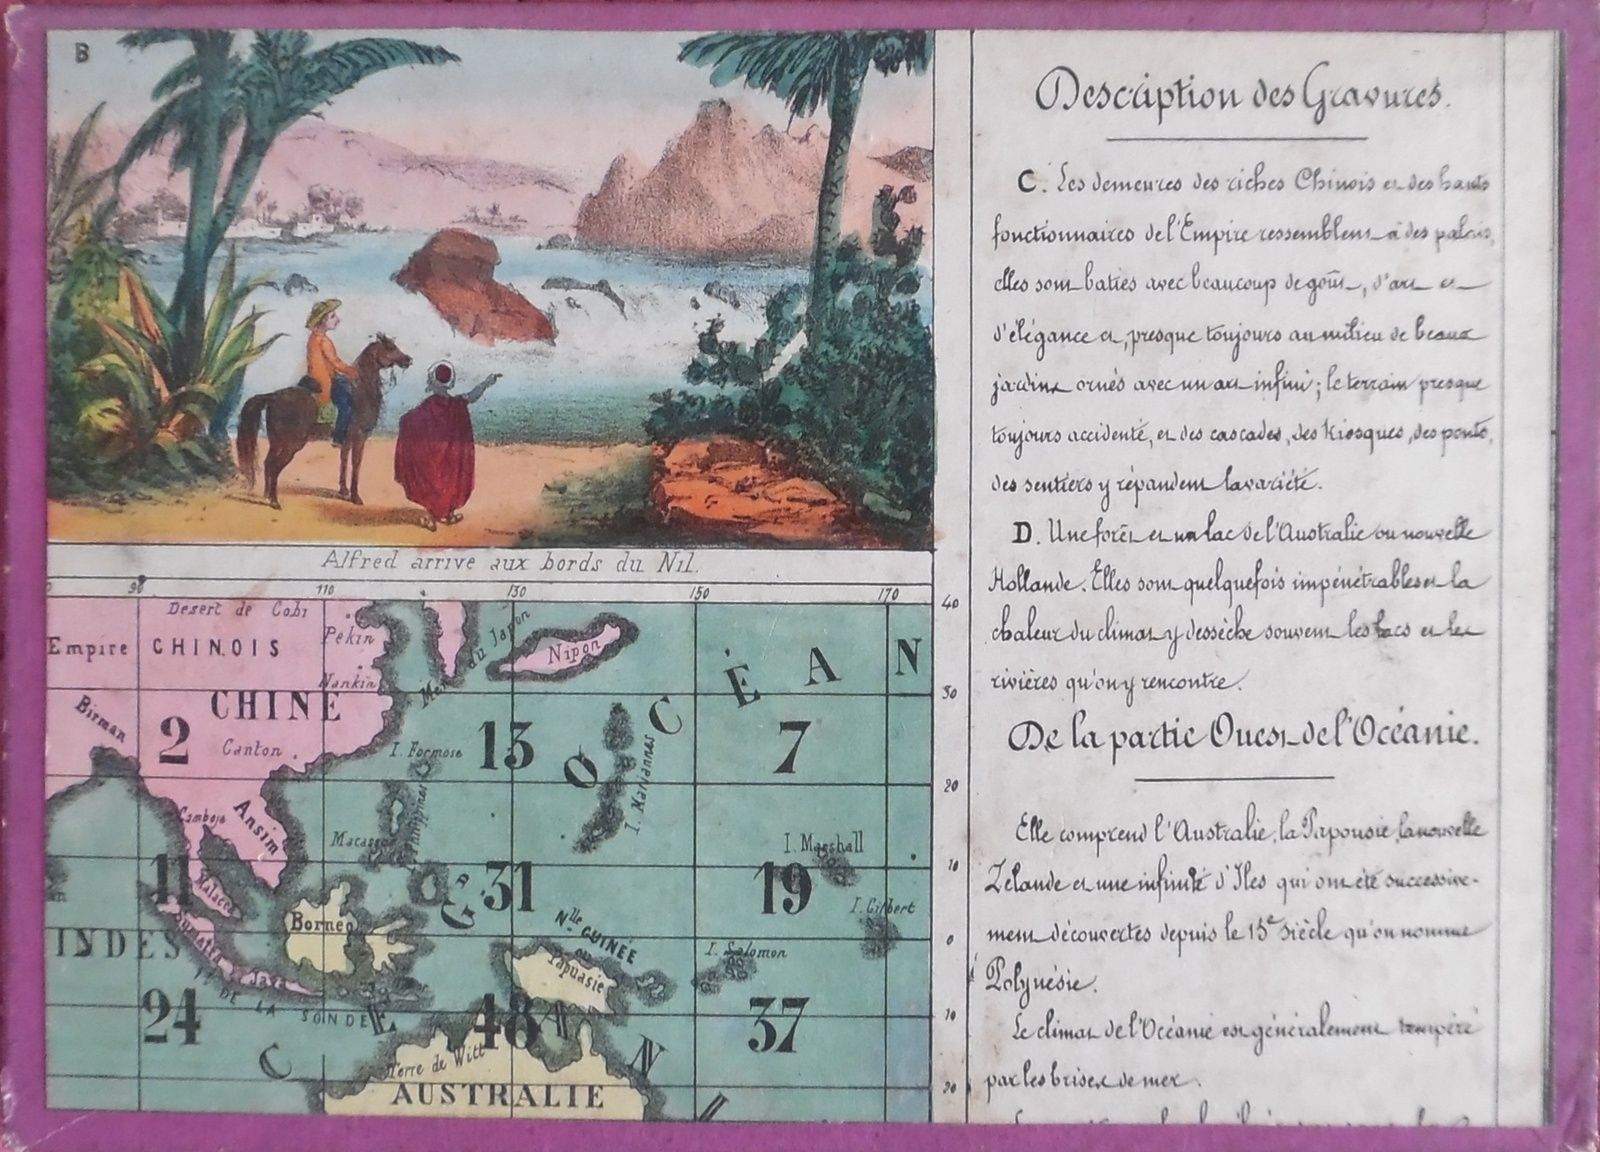 B
Alfred arrive aux bords du Nil.
90 110 130 150 170
40
30
20
10
0
10
20
Desert de Cobi
Empire CHINOIS
Pékin
Nankin
CHINE
Birman
2
Canton
Mer du Japon
Nipon
I. Formose
13
7
OCÉAN
I. Mariannes
Camboje
Ansim
Macassar
I. Philippines
I. Marshall
11
Malacca
31
19
I. Gilbert
Borneo
Nlle GUINÉE
ou
Papuasie
I. Salomon
INDES
Sumatra
Java
Is DE LA SONDE
24
48
37
Terre de Witt
AUSTRALIE
Description des Gravures.
C. Les demeures des riches Chinois et des hauts
fonctionnaires de l'Empire ressemblent à des palais,
elles sont baties avec beaucoup de goût, d'art et
d'élégance et, presque toujours au milieu de beaux
jardins ornés avec un art infini; le terrain presque
toujours accidenté, et des cascades, des Kiosques, des ponts,
des sentiers y répandent la variété.
D. Une forêt et un lac de l'Australie ou nouvelle
Hollande. Elles sont quelquefois impénétrables et la
chaleur du climat y dessèche souvent les lacs et les
rivières qu'on y rencontre.
De la partie Ouest de l'Océanie.
Elle comprend l'Australie, la Papousie, la nouvelle
Zélande et une infinité d'Iles qui ont été successive-
ment découvertes depuis le 15e siècle qu'on nomme
Polynésie.
Le climat de l'Océanie est généralement tempéré
par les brises de mer.